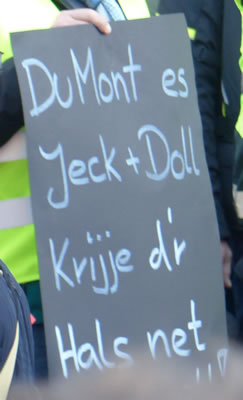 DuMont es
Jeck + Doll
Krijje d'r
Hals net